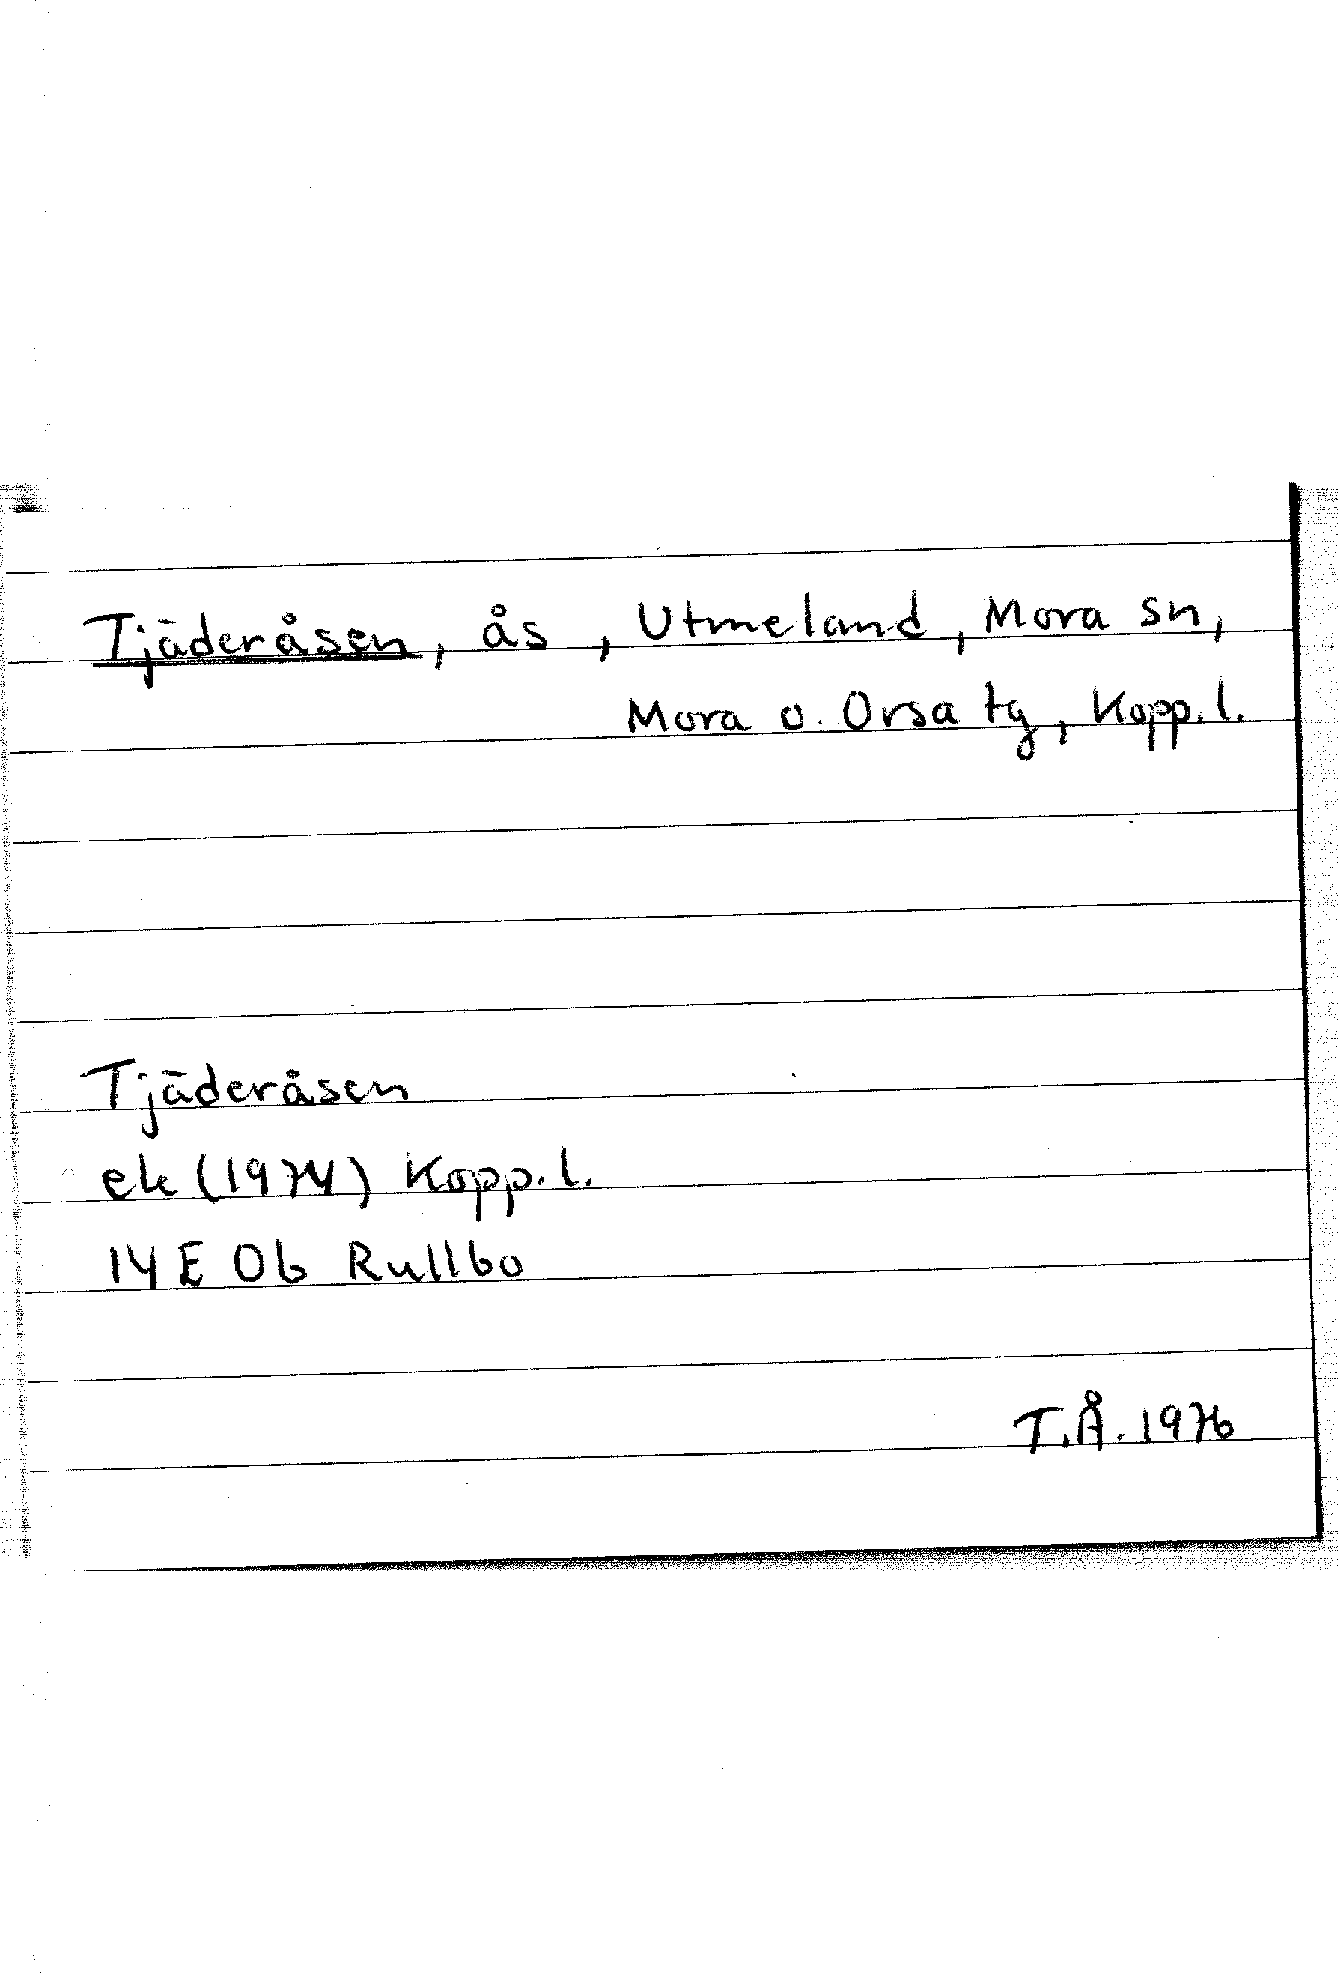 Tjäderåsen, ås, Utmeland, Mora sn,
Mora o. Orsa tg, Kopp. l.
Tjäderåsen
ek (1974) Kopp. l.
14 E 0b Rullbo
T.Å. 1976